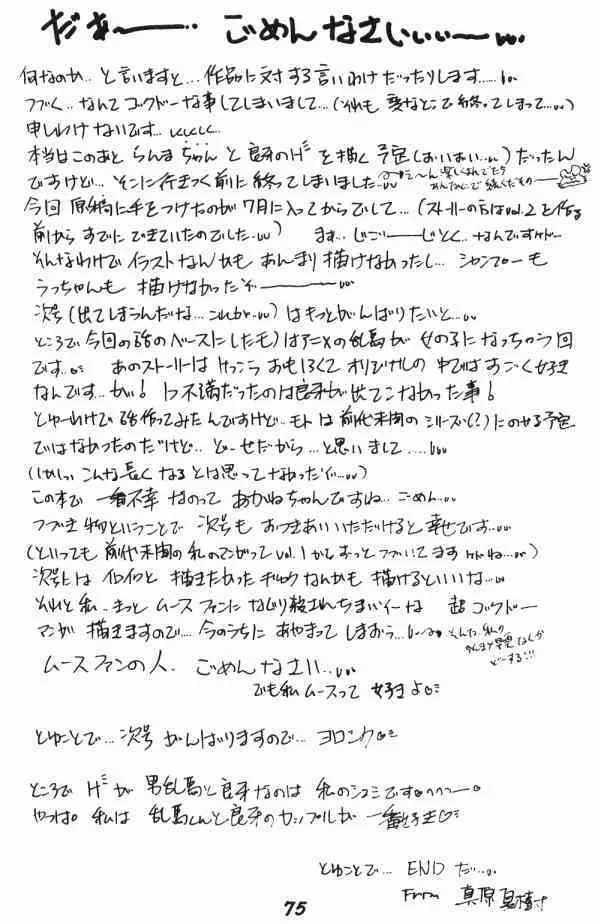 だぁ〜…  ごめんなさいぃぃ〜…
何なのか‥と言いますと…作品に対する言いわけだったりします……
つづく‥なんてゴクドーな事してしまいまして…(それも変なところで終ってしまって…)
申しわけないです…しくしく…
本当はこのあと らんまちゃんと良牙のHを描く予定(おいおい…)だったん
ですけど…そこに行きつく前に終ってしまいました
今回 原稿に手をつけたのが7月に入ってからでして…(ストーリーの方はvol.2を作る
前からすでにできていたのでした…) まぁ…じごーじとく‥なんですけど…
そんなわけでイラストなんかもあんまり描けなかったし… シャンプーも
うっちゃんも 描けなかったぞー
次号(出てしまうんだな…これが…)はもっとがんばりたいと…
ところで今回の話のベースにしたモノはアニメの乱馬が女の子になっちゃう回
です… あのストーリーはけっこうおもしろくてオリジナルの中ではすごく好き
なんです…が! 1つ不満だったのは良牙が出てこなかった事!
とゆーわけで話作ってみたんですけど‥モトは前代未聞のシリーズ(?)にのせる予定
ではなかったのだけど‥どーせだから…と思いまして……
(しかし こんな長くなるとは思ってなかったぞ…)
この本で 一番不幸なのって あかねちゃんですね…ごめん…
つづき物ということで 次号もおつきあいいただけると幸せです…
(といっても前代未聞の私のマンガってvol.1からずっとつづいてますけどね…)
次号は イロイロと 描きたかったギャグなんかも描けるといいな…
それと私‥きっと ムースファンになじり殺されちまいそーな 超ゴクドー
マンガ 描きますので…今のうちに あやまってしまおう…
ムースファンの人. ごめんなさい…
でも私ムースって 好きよ
とゆことで…次号 がんばりますので… ヨロシク
ところで Hが 男乱馬と良牙なのは 私のシュミです
やっぱ 私は 乱馬くんと良牙のカップルが 一番好き
とゆことで… END だ…
From 真原 夏樹
75